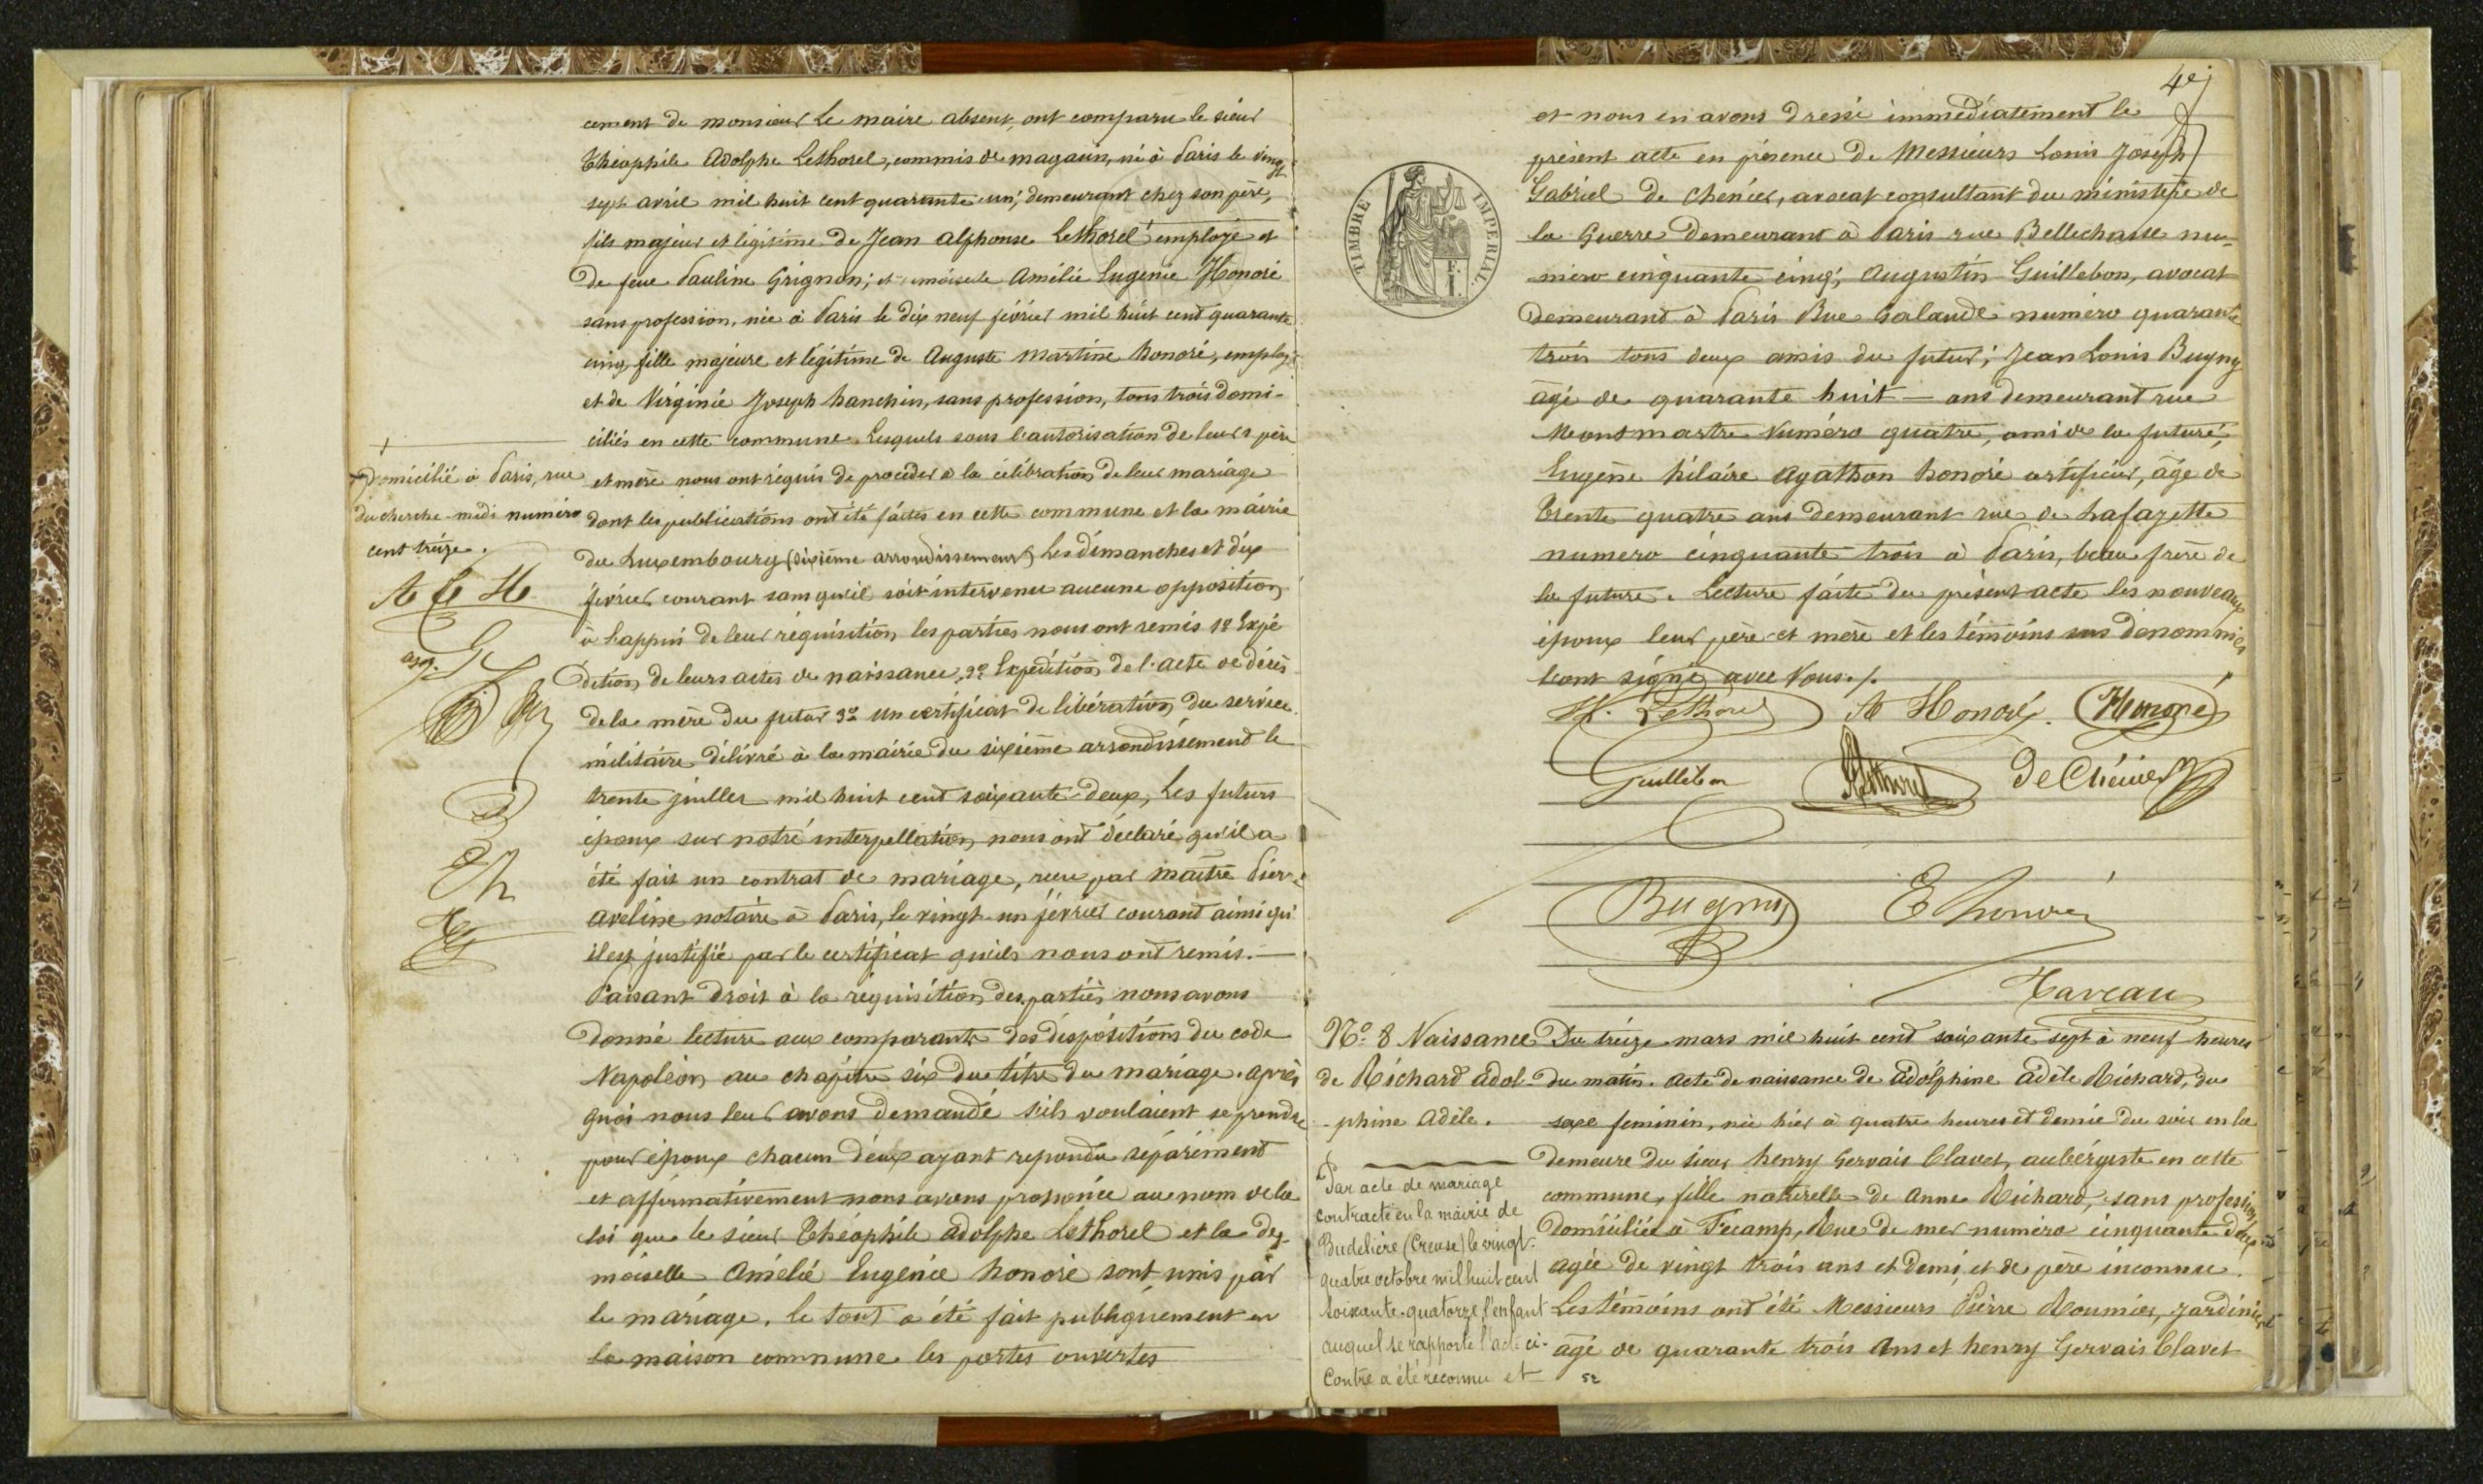 cement de monsieur le maire absent, ont comparu le sieur
Théophile Adolphe Lethorel, commis de magasin, né à Paris le vingt
sept avril mil huit cent quarante un, demeurant chez son père,
fils majeur et légitime de Jean Alphonse Lethorel employé et
de feue Pauline Grignon; et Amélie Eugénie Honoré
sans profession, née à Paris le dix neuf février mil huit cent quarante
cinq, fille majeure et légitime de Auguste Martine honoré, employé
et de Virginie Joseph hanchin, sans profession, tous trois domi-
ciliés en cette commune. Lesquels sous l'autorisation de leurs père
et mère nous ont réquis de procéder à la célébration de leur mariage
dont les publications ont été faites en cette commune et la mairie
du Luxembourg (sixième arrondissement) les dimanches et dix
février courant sans qu'il soit intervenu aucune opposition
à l'appui de leur réquisition, les parties nous ont remis 1º Expé
dition de leurs actes de naissance, 2º Expédition de l'acte de décès
de la mère du futur 3º un certificat de libération du service
militaire délivré à la mairie du sixième arrondissement le
trente juillet mil huit cent soixante-deux, Les futurs
époux sur notre interpellation, nous ont déclaré qu'il a
été fait un contrat de mariage, reçu par maître Pierre
Aveline notaire à Paris, le vingt-un février courant ainsi qu'
il est justifié par le certificat qu'ils nous ont remis.
Faisant droit à la réquisition des parties nous avons
donné lecture aux comparants des dispositions du code
Napoléon au chapitre six du titre du mariage. après
quoi nous leur avons demandé s'ils voulaient se prendre
pour époux chacun d'eux ayant repondu séparément
et affirmativement nous avons prononcé au nom de la
loi que le sieur Théophile Adolphe Lethorel et la de-
moiselle Amélie Eugénie honoré sont unis par
le mariage. le tout a été fait publiquement en
la maison commune les portes ouvertes
domicilié à Paris, rue
du cherche-midi numéro
cent treize.
A L H
G
Eh
4e
et nous en avons dressé immédiatement le
présent acte en présence de Messieurs Louis Joseph
Gabriel de Chenier, avocat consultant du ministère de
la Guerre demeurant à Paris rue Bellechasse nu-
méro cinquante cinq; Augustin Guillebon, avocat
demeurant à Paris Rue Galande numéro quarante
trois tous deux amis du futur; Jean Louis Bugny
âgé de quarante huit — ans demeurant rue
Montmartre Numéro quatre, ami de la future,
Eugène hilaire Agathon honoré artificier, âgé de
Trente quatre ans demeurant rue de Lafayette
numero cinquante trois à Paris, beau frère de
la future. Lecture faite du présent acte les nouveaux
époux leur père et mère et les témoins sus dénommés
l'ont signé avec Nous./.
TIMBRE IMPERIAL
Lethorel A Honoré. Honoré
Guillebon Lethorel De Chénier
Bugny E honoré
Taveau
Nº 8 Naissance
de Richard Adol-
-phine Adèle.
Du treize mars mil huit cent soixante sept à neuf heures
du matin. Acte de naissance de Adolphine Adèle Richard, du
sexe feminin, née hier à quatre heures et demie du soir en la
demeure du sieur henry Gervais Clavet, aubergiste en cette
commune, fille naturelle de Anne Richard, sans profession
domiciliée à Fécamp, Rue de mer numéro cinquante deux
agée de vingt trois ans et demi et de père inconnu.
Les témoins ont été Messieurs Pierre Roumier, jardinier
âgé de quarante trois ans et henry Gervais Clavet
Par acte de mariage
contracté en la mairie de
Budelière (Creuse) le vingt-
quatre octobre mil huit cent
soixante-quatorze, l'enfant
auquel se rapporte l'acte ci-
Contre a été reconnu et
52